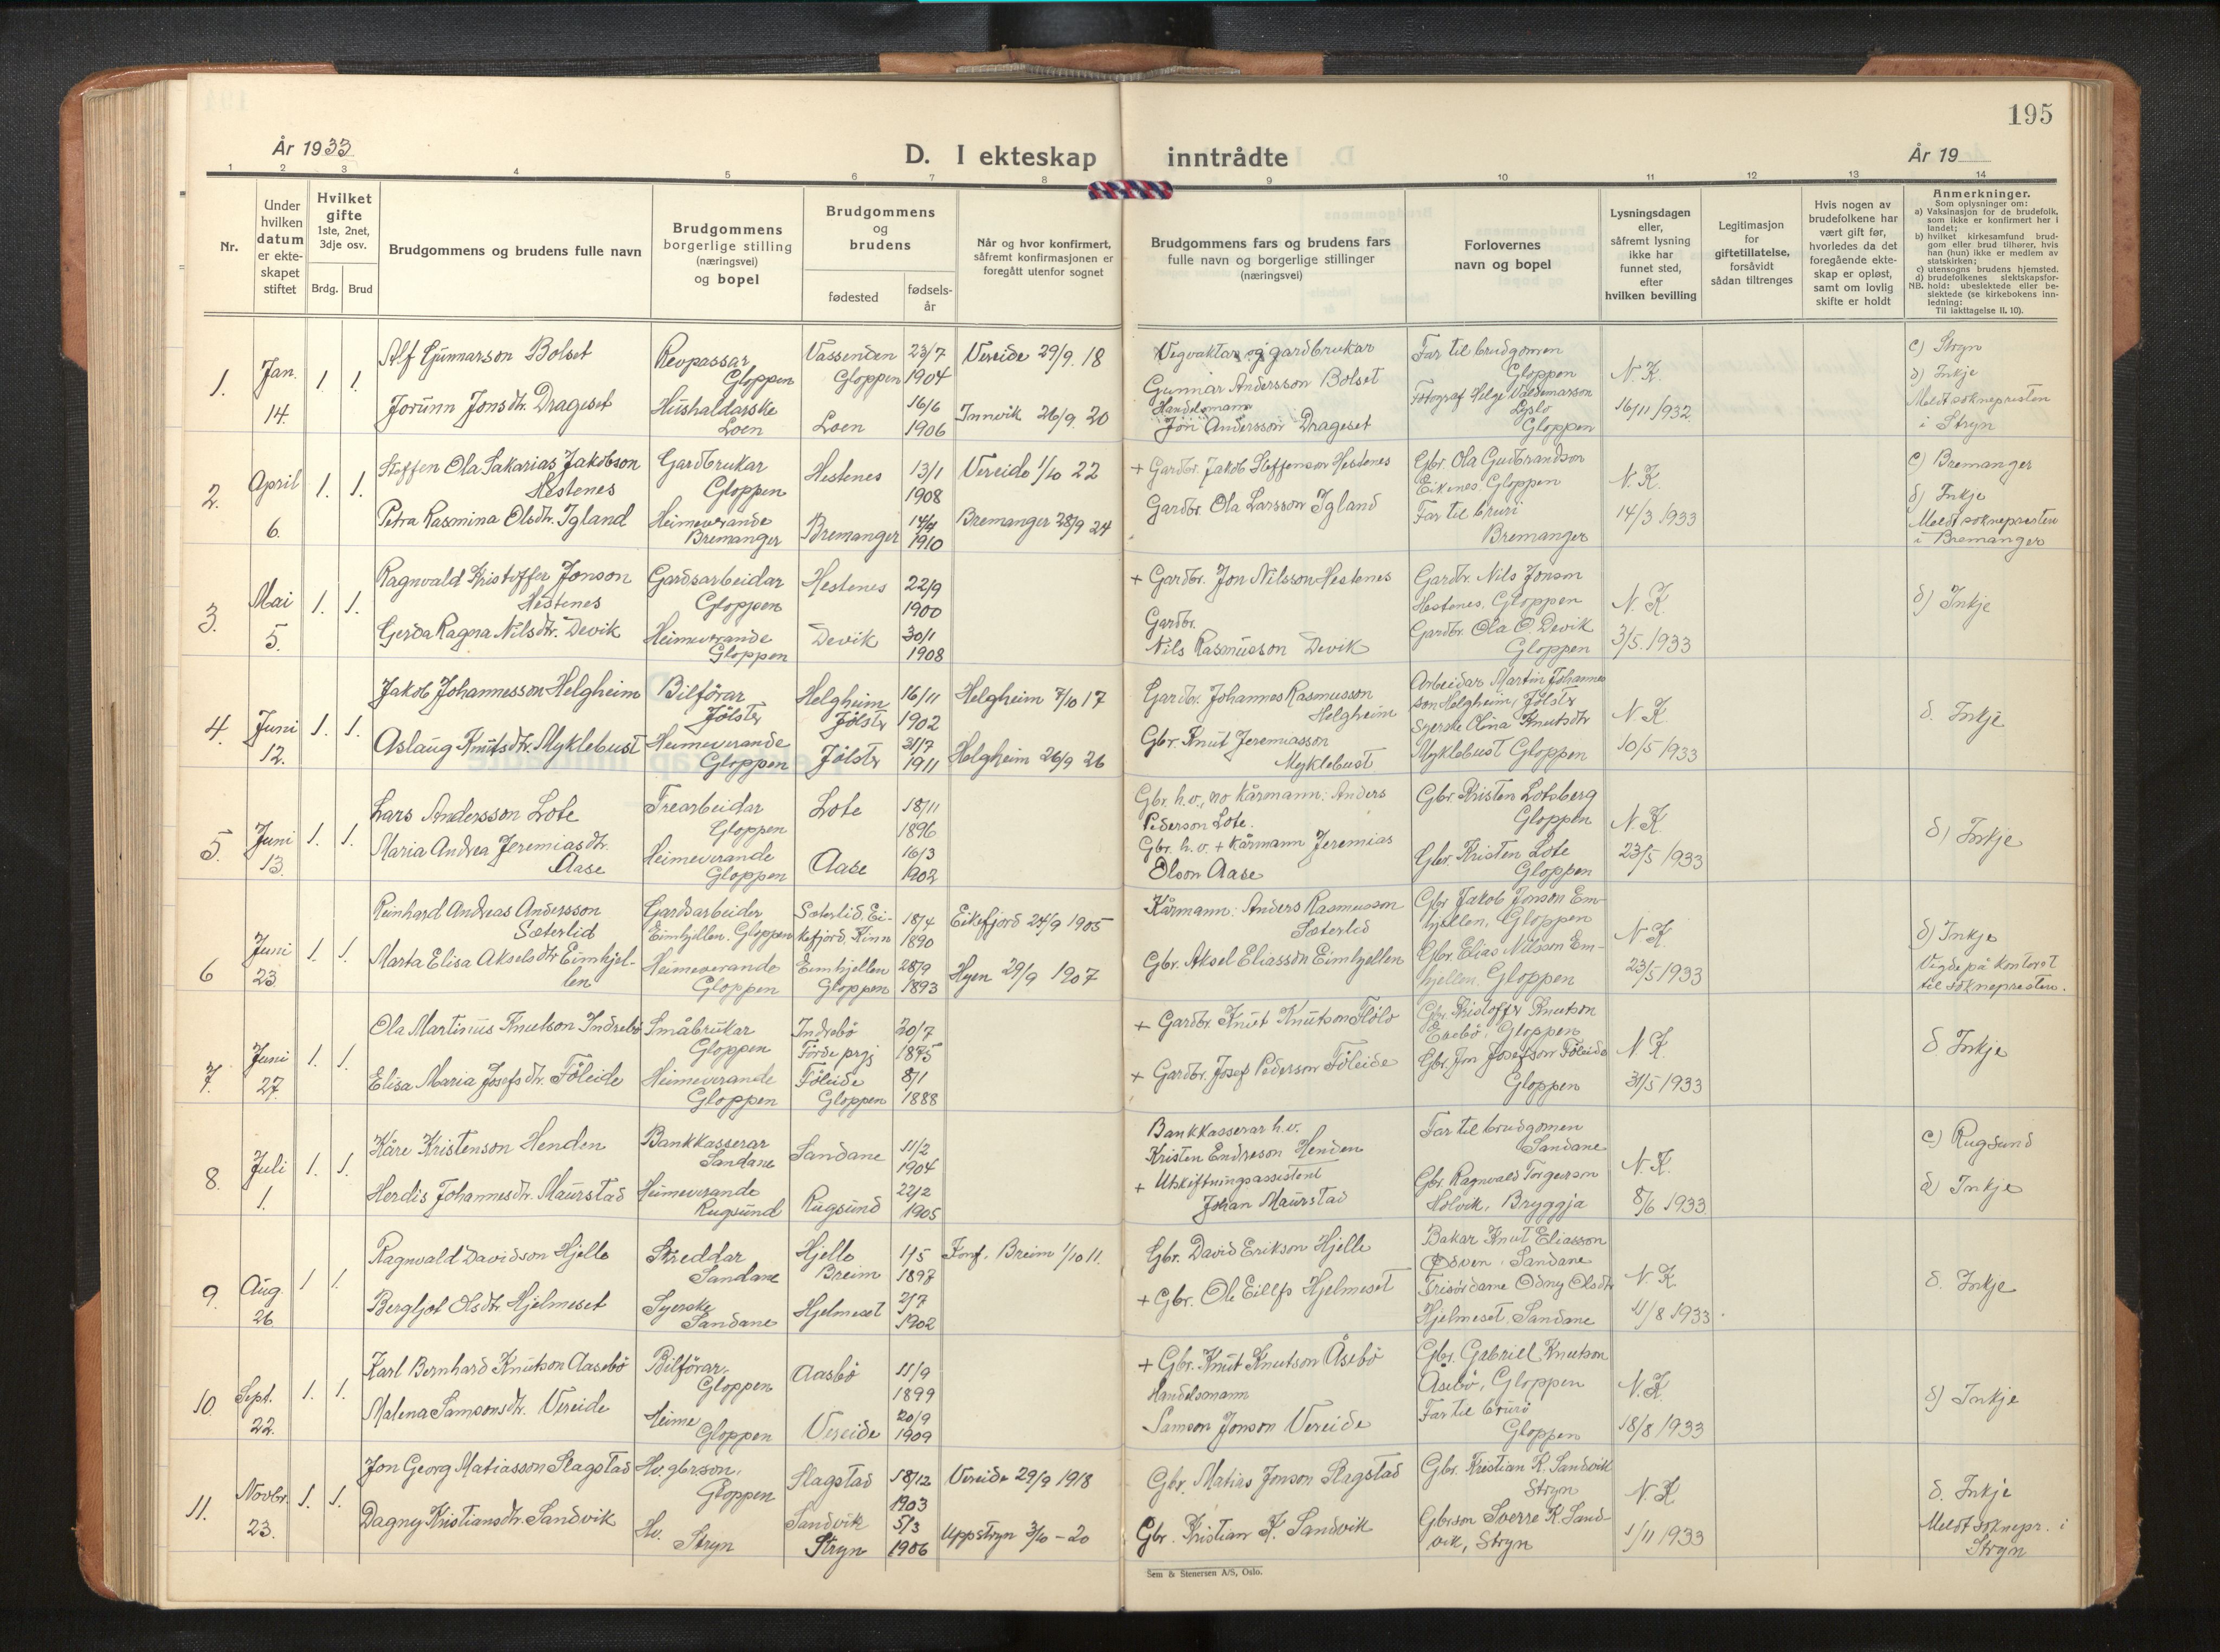 195
År 1933
D. I ekteskap inntrådte
År 19
1 2 3 4 5 6 7 8 9 10 11 12 13 14
Nr.
Under
hvilken
datum
er ekte-
skapet
stiftet
Hvilket
gifte
1ste, 2net,
3dje osv.
Brdg. Brud
Brudgommens og brudens fulle navn
Brudgommens
borgerlige stilling
(næringsvei)
og bopel
Brudgommens
og
brudens
fødested
fødsels-
år
Når og hvor konfirmert,
såfremt konfirmasjonen er
foregått utenfor sognet
Brudgommens fars og brudens fars
fulle navn og borgerlige stillinger
(næringsvei)
Forlovernes
navn og bopel
Lysningsdagen
eller,
såfremt lysning
ikke har
funnet sted,
efter
hvilken bevilling
Legitimasjon
for
giftetillatelse,
forsåvidt
sådan tiltrenges
Hvis nogen av
brudefolkene har
vært gift før,
hvorledes da det
foregående ekte-
skap er opløst,
samt om lovlig
skifte er holdt
Anmerkninger.
Som oplysninger om:
a) Vaksinasjon for de brudefolk,
som ikke er konfirmert her i
landet;
b) hvilket kirkesamfund brud-
gom eller brud tilhører, hvis
han (hun) ikke er medlem av
statskirken;
c) utensogns brudens hjemsted.
d) brudefolkenes slektskapsfor-
NB. hold: ubeslektede eller be-
slektede (se kirkebokens inn-
ledning:
Til iakttagelse II. 10).
1. Jan. 14. 1. 1.
Alf Gunnarson Bolset
Revpassar
Gloppen
Vassenden
Gloppen
23/7
1904
Vereide 29/9. 18
Vegvaktar og gardbrukar
Gunnar Andersson Bolset
Far til brudgomen
Gloppen
Jorunn Jonsdtr. Drageset
Hushaldarske
Loen
Loen
16/6
1906
Innvik 26/9. 20
Handelsmann
Jon Andersson Drageset
Fotograf Helge Valdemarson
Lyslo
Gloppen
N. K.
16/11 1932
c) Stryn
d) Inkje
Meldt soknepresten
i Stryn
2. April 6. 1. 1.
Steffen Ola Sakarias Jakobson
Hestenes
Gardbrukar
Gloppen
Hestenes
13/1
1908
Vereide 1/10 22
+ Gardbr. Jakob Steffenson Hestenes
Gbr. Ola Gudbrandson
Eikenes. Gloppen
Petra Rasmina Olsdtr. Igland
Heimeverande
Bremanger
Bremanger
14/4
1910
Bremanger 28/9 24
Gardbr. Ola Larsson Igland
Far til bruri
Bremanger
N. K.
14/3 1933
c) Bremanger
d) Inkje
Meldt soknepresten
i Bremanger
3. Mai 5. 1. 1.
Ragnvald Kristoffer Jonson
Hestenes
Gardsarbeidar
Gloppen
Hestenes
22/9
1900
+ Gardbr. Jon Nilsson Hestenes
Gardbr. Nils Jonson
Hestenes, Gloppen
Gerda Ragna Nilsdtr. Devik
Heimeverande
Gloppen
Devik
30/1
1908
Gardbr.
Nils Rasmusson Devik
Gardbr. Ola O. Devik
Gloppen
N. K.
3/5. 1933
d) Inkje
4. Juni 12. 1. 1.
Jakob Johannesson Helgheim
Bilförar
Jölster
Helgheim
Jölstr
16/11
1902
Helgheim 7/10 17
Gardbr. Johannes Rasmusson
Helgheim
Arbeidar Martin Johannes
son Helgheim, Jölstr
Aslaug Knutsdtr. Myklebust
Heimeverande
Gloppen
Jölstr
21/7
1911
Helgheim 26/9 26
Gbr. Knut Jeremiasson
Myklebust
Syerske Olina Knutsdtr
Myklebust Gloppen
N. K.
10/5 1933
d. Inkje
5. Juni 13. 1. 1.
Lars Andersson Lote
Trearbeidar
Gloppen
Lote
18/11
1896
Gbr. h.v., no kårmann: Anders
Pederson Lote.
Gbr. Kristen Lotsberg
Gloppen
Maria Andrea Jeremiasdtr.
Aase
Heimeverande
Gloppen
Aase
16/3
1902
Gbr. h.v. + Kårmann Jeremias
Olson Aase
Gbr. Kristen Lote
Gloppen
N. K.
23/5 1933
d) Inkje
6 Juni 23. 1. 1.
Reinhard Andreas Andersson
Sæterlid
Gardsarbeider
Eimhjellen. Gloppen
Sæterlid. Ei-
kefjord, Kinn
18/4
1890
Eikefjord 24/9 1905
Kårmann: Anders Rasmusson
Sæterlid
Gbr Jakob Jonson Em-
hjellen, Gloppen
Marta Elisa Akselsdtr Eimhjel-
len
Heimeverande
Gloppen
Eimhjellen
Gloppen
28/9
1893
Hyen 29/9 1907
Gbr. Aksel Eliassøn Eimhjellen
Gbr. Elias Nilsson Em-
hjellen. Gloppen
N. K.
23/5 1933
d) Inkje
Vigde på kontoret
til soknepresten.
7. Juni 27. 1. 1.
Ola Martinius Knutson Indrebö
Småbrukar
Gloppen
Indrebö
Förde prgj
20/7
1875
+ Gardbr. Knut Knutson Flölo
Gbr. Kristoffer Knutson
Gloppen
Elisa Maria Josefsdtr. Föleide
Heimeverande
Gloppen
Föleide
Gloppen
8/1
1888
+ Gardbr. Josef Pederson Föleide
Gbr. Jon Josefson Föleide
Gloppen
N. K.
31/5 1933
d Inkje
8. Juli 1. 1. 1.
Kåre Kristenson Henden
Bankkasserar
Sandane
Sandane
11/2
1904
Bankkasserar h.v.
Kristen Endreson Henden
Far til brudgomen
Sandane
Herdis Johannesdtr. Maurstad
Heimeverande
Rugsund
Rugsund
22/2
1905
+ Utskiftningsassistent
Johan Maurstad
Gbr. Ragnvald Torgerson
Holvik, Bryggja
N. K.
8/6 1933
c) Rugsund
d) Inkje
9. Aug. 26 1 1.
Ragnvald Davidson Hjelle
Skreddar
Sandane
Hjelle
Breim
1/5
1897
Konf. Breim 1/10 11.
Gbr. David Erikson Hjelle
Bakar Knut Eliasson
Ødven. Sandane
Bergljot Olsdtr. Hjelmeset
Syerske
Sandane
Hjelmeset
2/7
1902
+ Gbr. Ole Eillfs Hjelmeset
Frisördame Odny Olsdtr
Hjelmeset. Sandane
N. K
11/8 1933.
d. Inkje
10. Sept. 22. 1. 1.
Karl Bernhard Knutson Aasebö
Bilförar.
Gloppen
Aasbö
11/9
1899
+ Gbr. Knut Knutson Åsebö
Gbr. Gabriell Knutson
Åsebö, Gloppen
Malena Samsonsdtr. Vereide
Heime
Gloppen
Vereide
20/9
1909
Handelsmann
Samson Jonson Vereide
Far til bruri
Gloppen
N. K.
18/8 1933
d) Inkje
11. Novbr. 23. 1. 1.
Jon Georg Matiasson Slagstad
Hv. gbrson.
Gloppen
Slagstad
18/12
1903
Vereide 29/9 1918
Gbr. Matias Jonson Slagstad
Gbr. Kristian K. Sandvik
Stryn
Dagny Kristiansdtr. Sandvik
Hv.
Stryn
Sandvik
Stryn
5/3
1906
Uppstryn 3/10 - 20
Gbr. Kristian K. Sandvik
Gbrson Sverre K. Sand-
vik, Stryn
N. K
1/11 1933
d. Inkje
Meldt soknepr. i
Stryn
Sem & Stenersen A/S, Oslo.